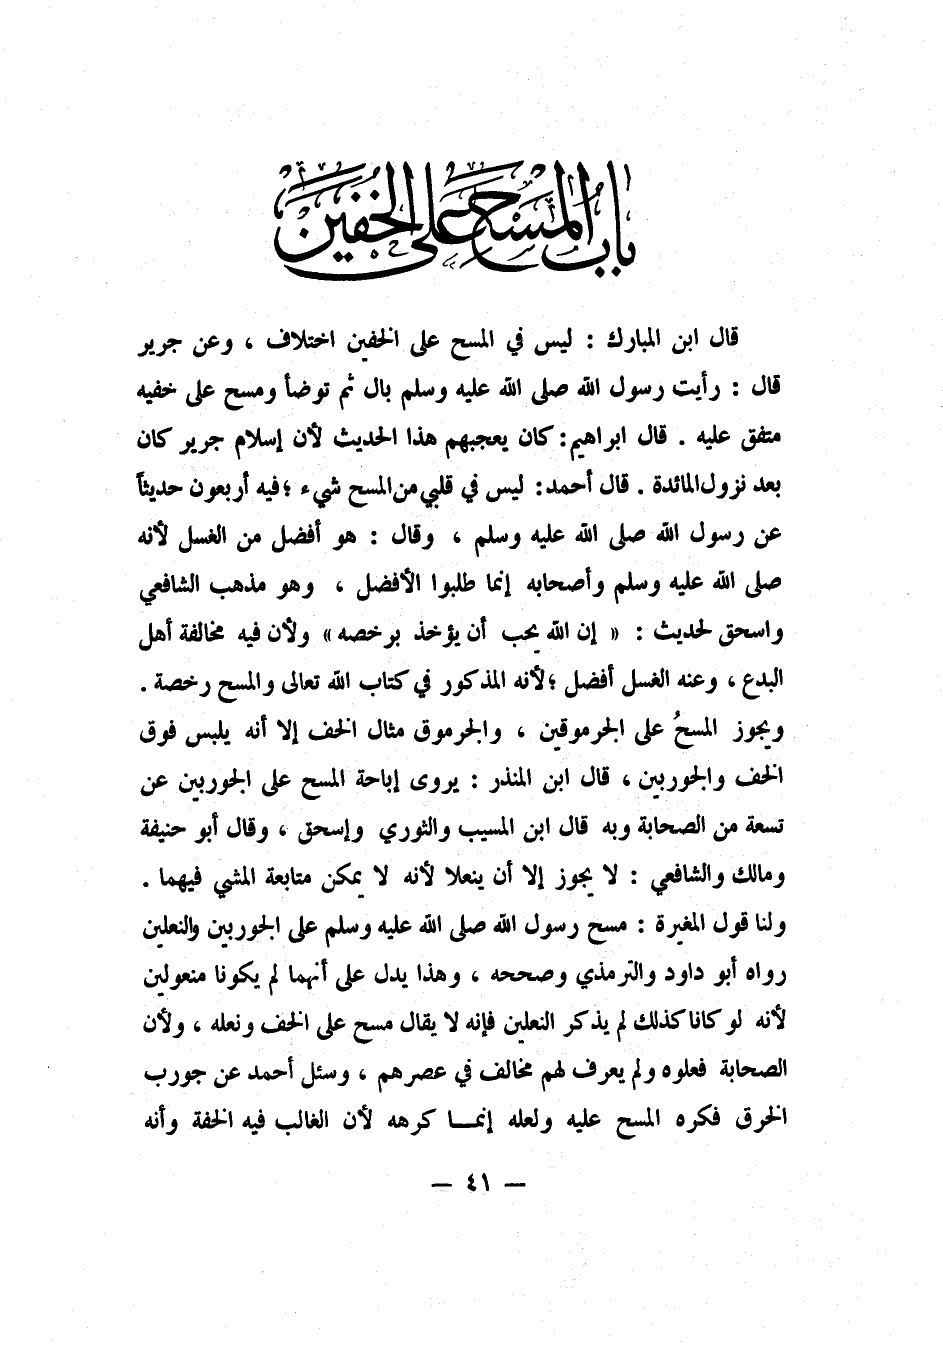 باب المسح على الخفين
قال ابن المبارك : ليس في المسح على الخفين اختلاف ، وعن جرير
قال : رأيت رسول الله صلى الله عليه وسلم بال ثم توضأ ومسح على خفيه
متفق عليه . قال ابراهيم : كان يعجبهم هذا الحديث لأن إسلام جرير كان
بعد نزول المائدة . قال أحمد : ليس في قلبي من المسح شيء ؛ فيه أربعون حديثاً
عن رسول الله صلى الله عليه وسلم ، وقال : هو أفضل من الغسل لأنه
صلى الله عليه وسلم وأصحابه إنما طلبوا الأفضل ، وهو مذهب الشافعي
واسحق لحديث : « إن الله يحب أن يؤخذ برخصه » ولأن فيه مخالفة أهل
البدع ، وعنه الغسل أفضل ؛ لأنه المذكور في كتاب الله تعالى والمسح رخصة .
ويجوز المسحُ على الجرموقين ، والجرموق مثال الخف إلا أنه يلبس فوق
الخف والجوربين ، قال ابن المنذر : يروى إباحة المسح على الجوربين عن
تسعة من الصحابة وبه قال ابن المسيب والثوري وإسحق ، وقال أبو حنيفة
ومالك والشافعي : لا يجوز إلا أن ينعلا لأنه لا يمكن متابعة المشي فيهما .
ولنا قول المغيرة : مسح رسول الله صلى الله عليه وسلم على الجوربين والنعلين
رواه أبو داود والترمذي وصححه ، وهذا يدل على أنهما لم يكونا منعولين
لأنه لو كانا كذلك لم يذكر النعلين فإنه لا يقال مسح على الخف ونعله ، ولأن
الصحابة فعلوه ولم يعرف لهم مخالف في عصرهم ، وسئل أحمد عن جورب
الخرق فكره المسح عليه ولعله إنمـا كرهه لأن الغالب فيه الخفة وأنه
— ٤١ —